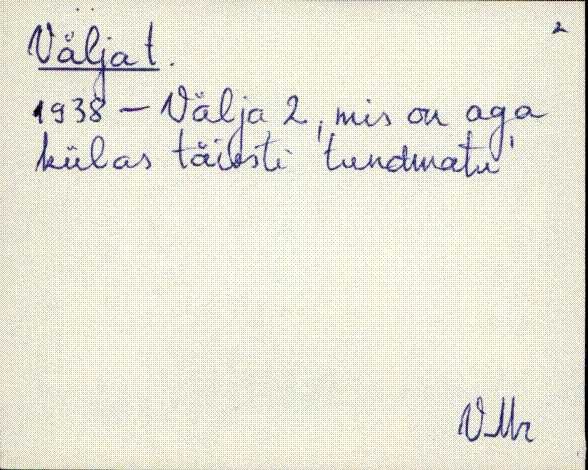 2
Välja t.
1938 – Välja 2, mis on aga
külas täiesti tundmatu
VMr